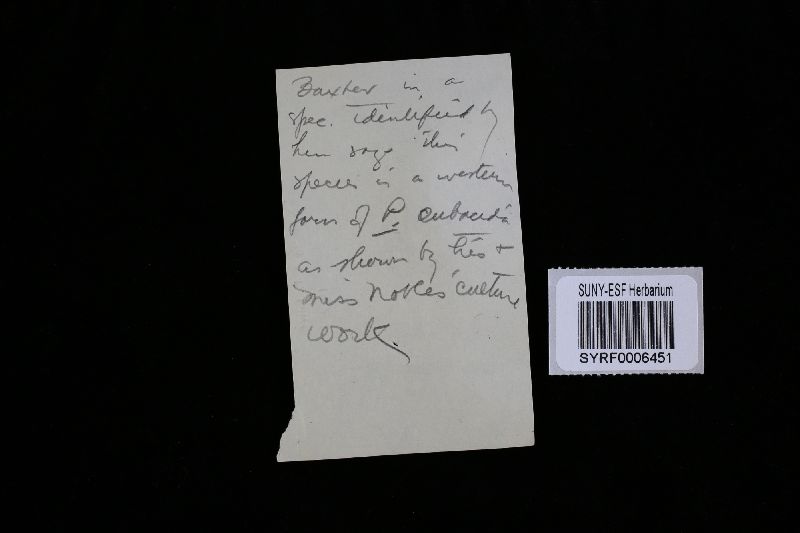 Baxter in a
spec. identified by
him says this
species is a western
form of P. subacida
as shown by his +
Miss Nobles' culture
work.
SUNY-ESF Herbarium
SYRF0006451